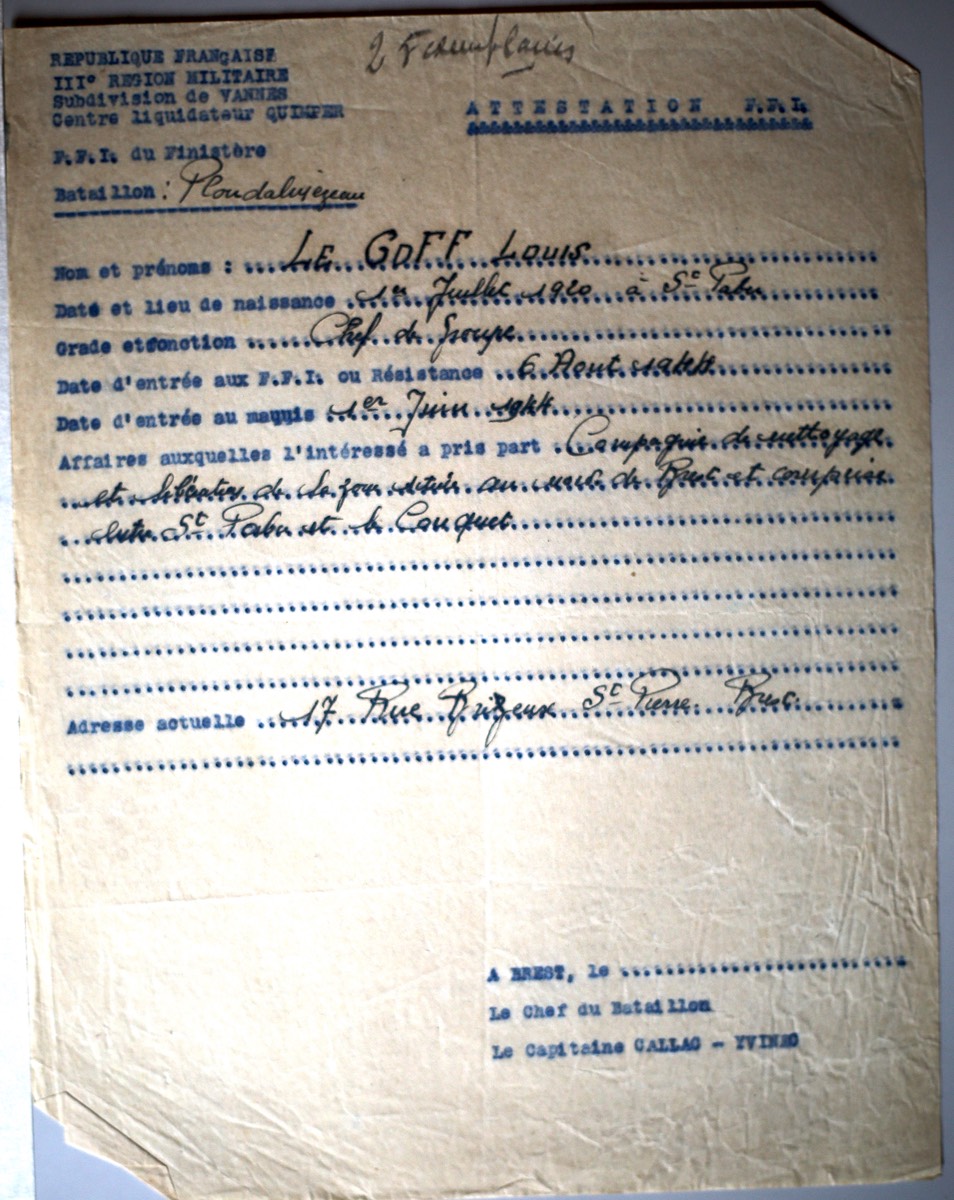 2 Exemplaires
REPUBLIQUE FRANÇAISE
III° REGION MILITAIRE
Subdivision de VANNES
Centre liquidateur QUIMPER
ATTESTATION F.F.I.
F.F.I. du Finistère
Bataillon : Ploudalmézeau
Nom et prénoms : LE GOFF LOUIS
Date et lieu de naissance 1er Juillet 1920 à St Pabu
Grade et fonction Chef de groupe
Date d'entrée aux F.F.I. ou Résistance 6 Aout 1944
Date d'entrée au maquis 1er Juin 1944
Affaires auxquelles l'intéressé a pris part Campagne de nettoyage
et libération de la zone située au nord de Brest et comprise
entre St Pabu et le Conquet
Adresse actuelle 17 Rue Brizeux St Pierre Brest
A BREST, le
Le Chef du Bataillon
Le Capitaine CALLAC - YVINEC